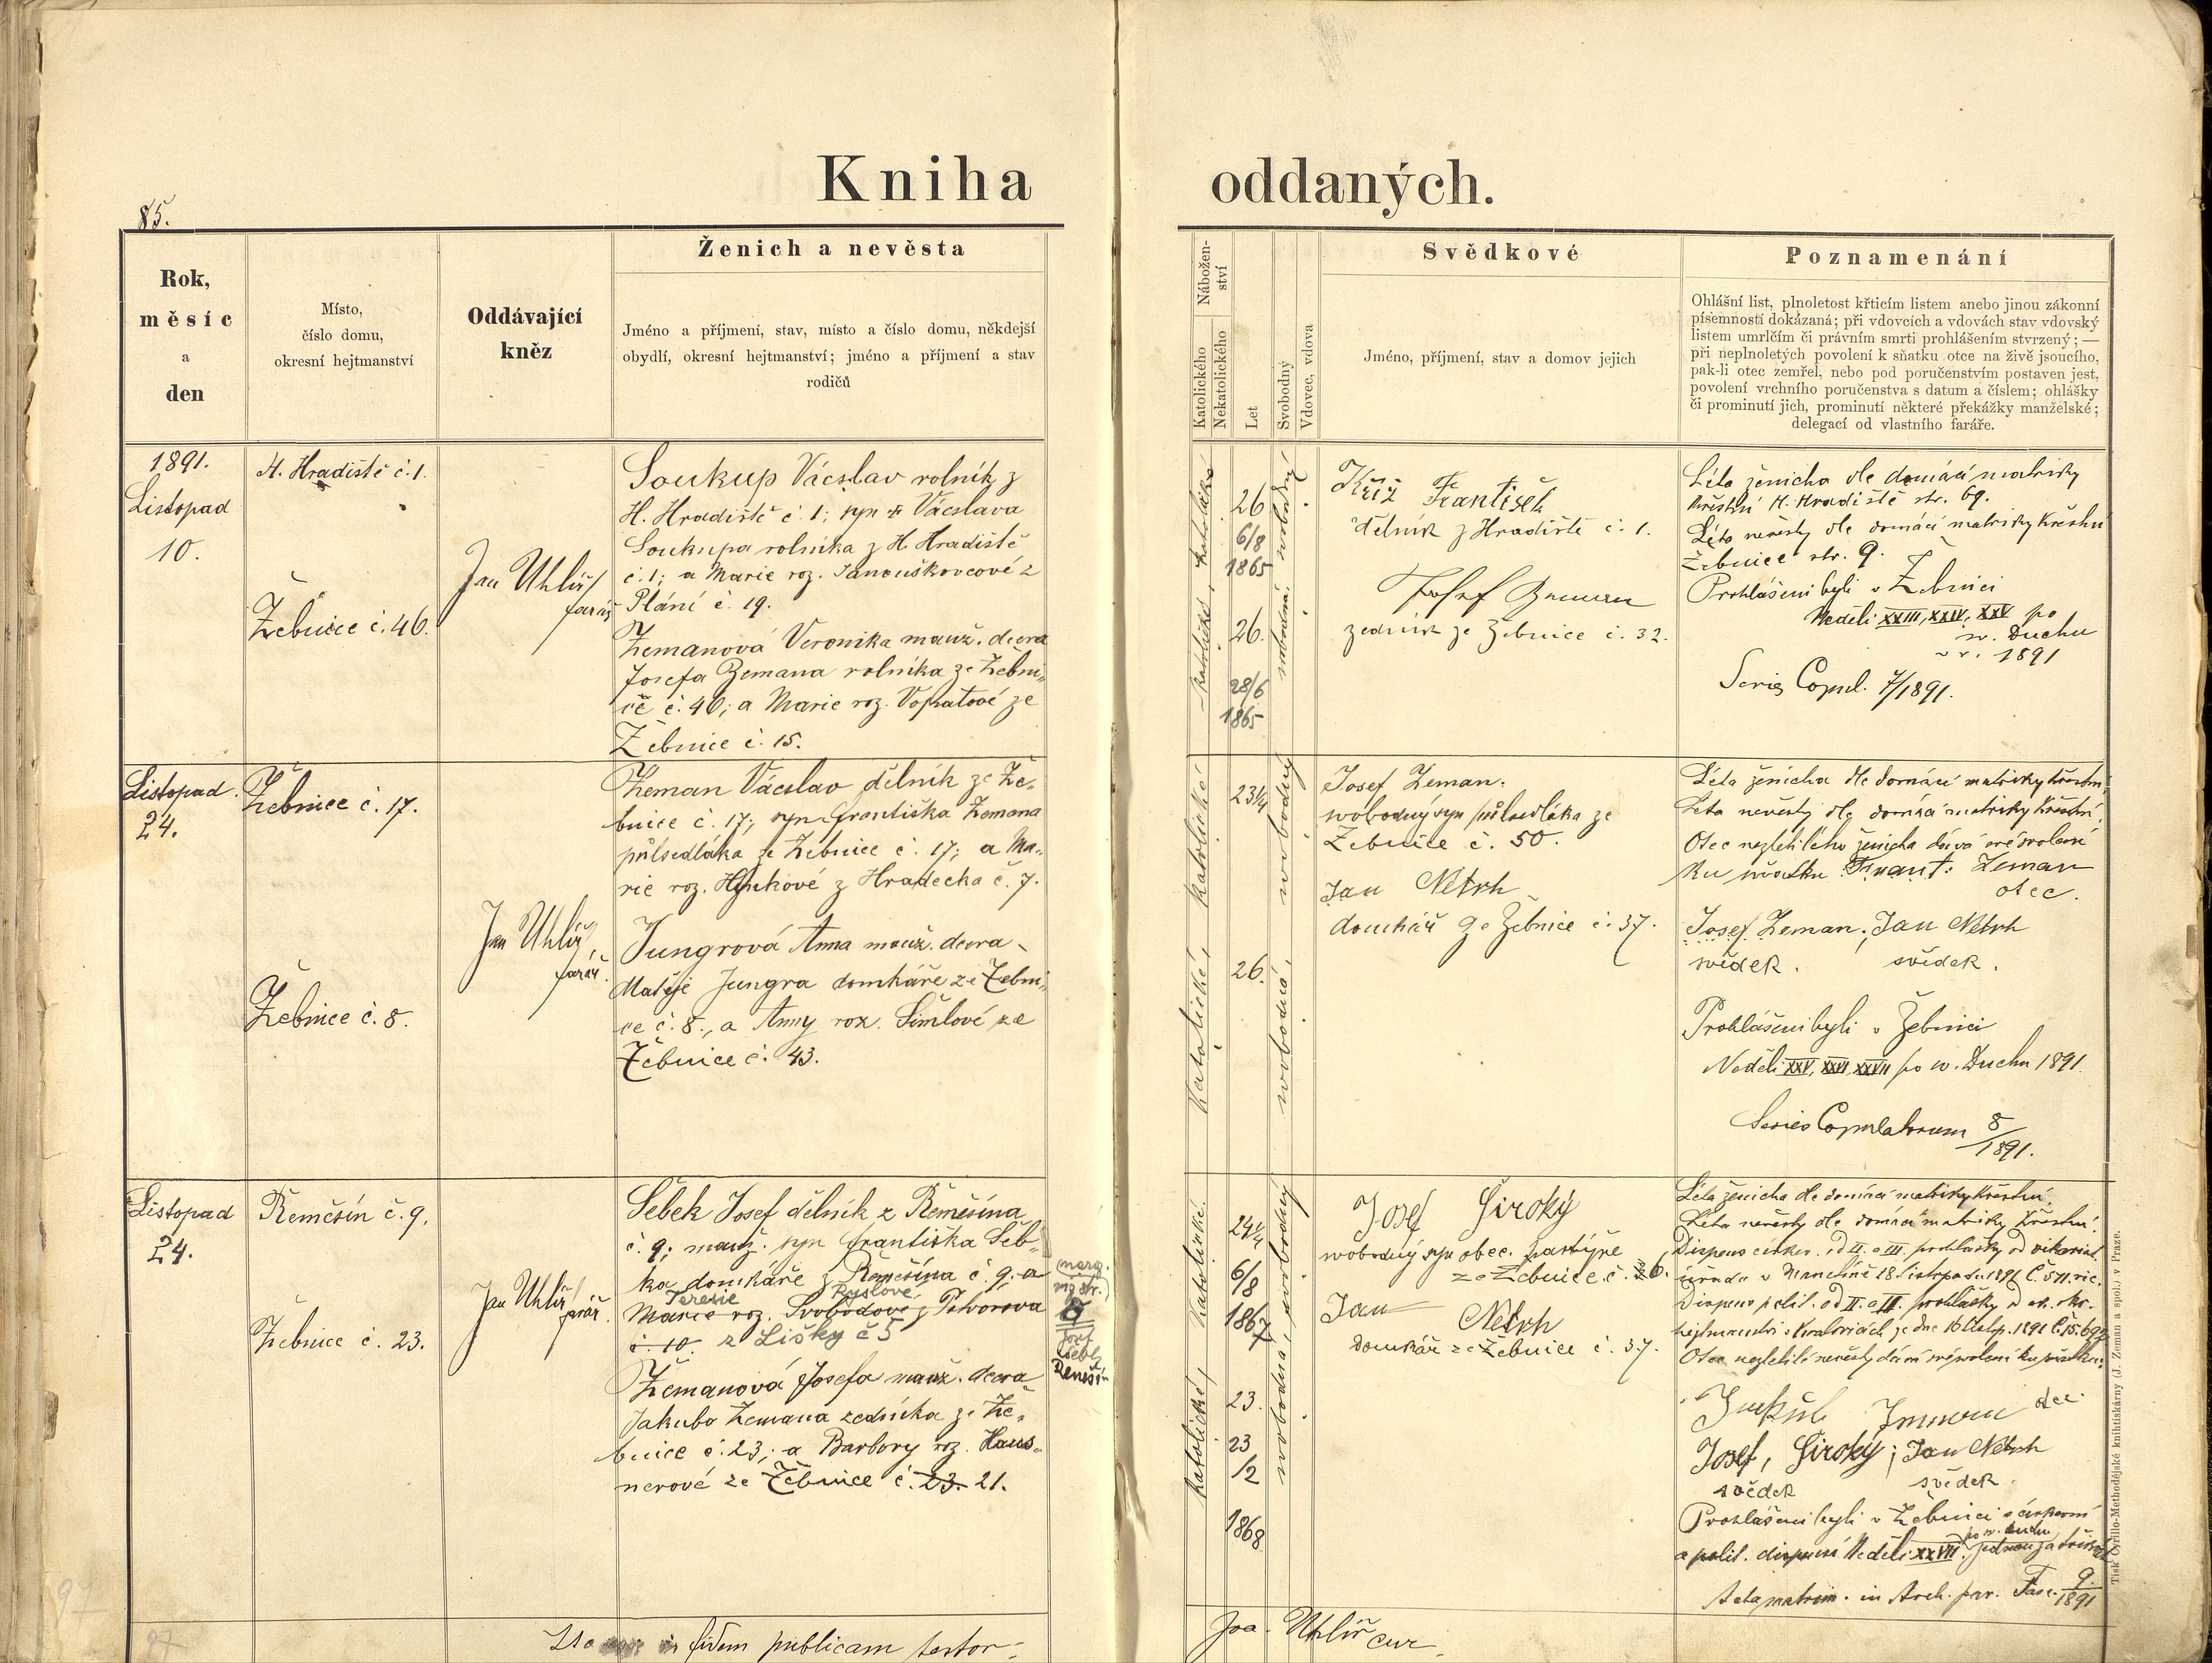 Kniha oddaných.
85.
Rok,
měsíc
a
den
Místo,
číslo domu,
okresní hejtmanství
Oddávající
kněz
Ženich a nevěsta
Jméno a příjmení, stav, místo a číslo domu, někdejší
obydlí, okresní hejtmanství; jméno a příjmení a stav
rodičů
Nábožen-
ství
Katolického
Nekatolického
Let
Svobodný
Vdovec, vdova
Svědkové
Jméno, příjmení, stav a domov jejich
Poznamenání
Ohlášní list, plnoletost křticím listem anebo jinou zákonní
písemností dokázaná; při vdovcích a vdovách stav vdovský
listem umrlčím či právním smrti prohlášením stvrzený; —
při neplnoletých povolení k sňatku otce na živě jsoucího,
pak-li otec zemřel, nebo pod poručenstvím postaven jest,
povolení vrchního poručenstva s datum a číslem; ohlášky
či prominutí jich, prominutí některé překážky manželské;
delegací od vlastního faráře.
1891.
Listopad
10.
H. Hradiště č. 1.
Žebnice č. 46.
Jan Uhlíř
farář
Soukup Václav rolník z
H. Hradiště č. 1; syn Václava
Soukupa rolníka z H. Hradiště
č. 1; a Marie roz. Janouškovcové z
Plání č. 19.
Zemanová Veronika manž. dcera
Josefa Zemana rolníka ze Žebni-
ce č. 46; a Marie roz. Vopatové ze
Žebnice č. 15.
katolické, katolické
26
6/8
1865
26.
28/6
1865
svobodná, svobodný
Kříž František
dělník z Hradiště č. 1.
Josef Zeman
zedník ze Žebnice č. 32.
Léta ženicha dle domácí matriky
křestní H. Hradiště str. 69.
Léta nevěsty dle domácí matriky křestní
Žebnice str. 9.
Prohlášeni byli v Žebnici
Neděli XXIII, XXIV, XXV po
sv. Duchu
v r. 1891
Series Copul. 7/1891.
Listopad
24.
Žebnice č. 17.
Žebnice č. 8.
Jan Uhlíř,
farář.
Zeman Václav dělník ze Že-
bnice č. 17; syn Františka Zemana
půlsedláka ze Žebnice č. 17; a Ma-
rie roz. Hynkové z Hradecka č. 7.
Jungrová Anna manž. dcera
Matěje Jungra domkáře ze Žebni-
ce č. 8., a Anny roz. Šimlové ze
Žebnice č. 43.
katolické, katolické
23 1/4
26.
svobodná, svobodný
Josef Zeman.
svobodný syn půlsedláka ze
Žebnice č. 50.
Jan Netrh
domkář ze Žebnice č. 37.
Léta ženicha dle domácí matriky křestní;
Léta nevěsty dle domácí matriky křestní.
Otec nezletilého ženicha dává své svolení
ku sňatku Frant. Zeman
otec.
Josef Zeman; Jan Netrh
svědek. svědek.
Prohlášeni byli v Žebnici
Neděli XXV, XXVI, XXVII po sv. Duchu 1891.
Series Copulatorum 8/1891.
Listopad
24.
Řemešín č. 9.
Žebnice č. 23.
Jan Uhlíř
farář.
Šebek Josef dělník z Řemešína
č. 9; manž. syn Františka Šeb-
ka domkáře z Řemešína č. 9; a
Terezie Ryslové
Marie roz. Svobodové z Potvorova
č. 10. z Lišky č 5
Zemanová Josefa manž. dcera
Jakuba Zemana zedníka ze Že-
bnice č. 23; a Barbory roz. Haus-
nerové ze Žebnice č. 23. 21.
Josef
katolické, katolické
24 1/4
6/8
1867
23.
23
/2
1868
svobodná, svobodný
Josef Široký
svobodný syn obec. pastýře
ze Žebnice č. 6.
Jan Netrh
domkář ze Žebnice č. 37.
Léta ženicha dle domácí matriky křestní.
Léta nevěsty dle domácí matriky křestní.
Dispens církev. od II. a III. prohlášky od vikariát.
úřadu v Manetíně 18. listopadu 1891 Č. 571. vic.
Dispens polit. od II. a III. prohlášky od ok.
hejtmanství v Kralovicích ze dne 16 listop. 1891
Otec nezletilé nevěsty dává své svolení ku sňatku:
Jakub Zeman otec
Josef, Široký; Jan Netrh
svědek svědek.
Prohlášeni byli v Žebnici s církevní
po sv. Duchu
a polit. dispensí Neděli XXVII. jednou za třikrát
Acta matrim. in Arch. par. Fasc. 9./1891
in fidem publicam testor:
Joa. Uhlíř cur.
97
97
Tisk Cyrillo-Methodějské knihtiskárny (J. Zeman a spol.) v Praze.